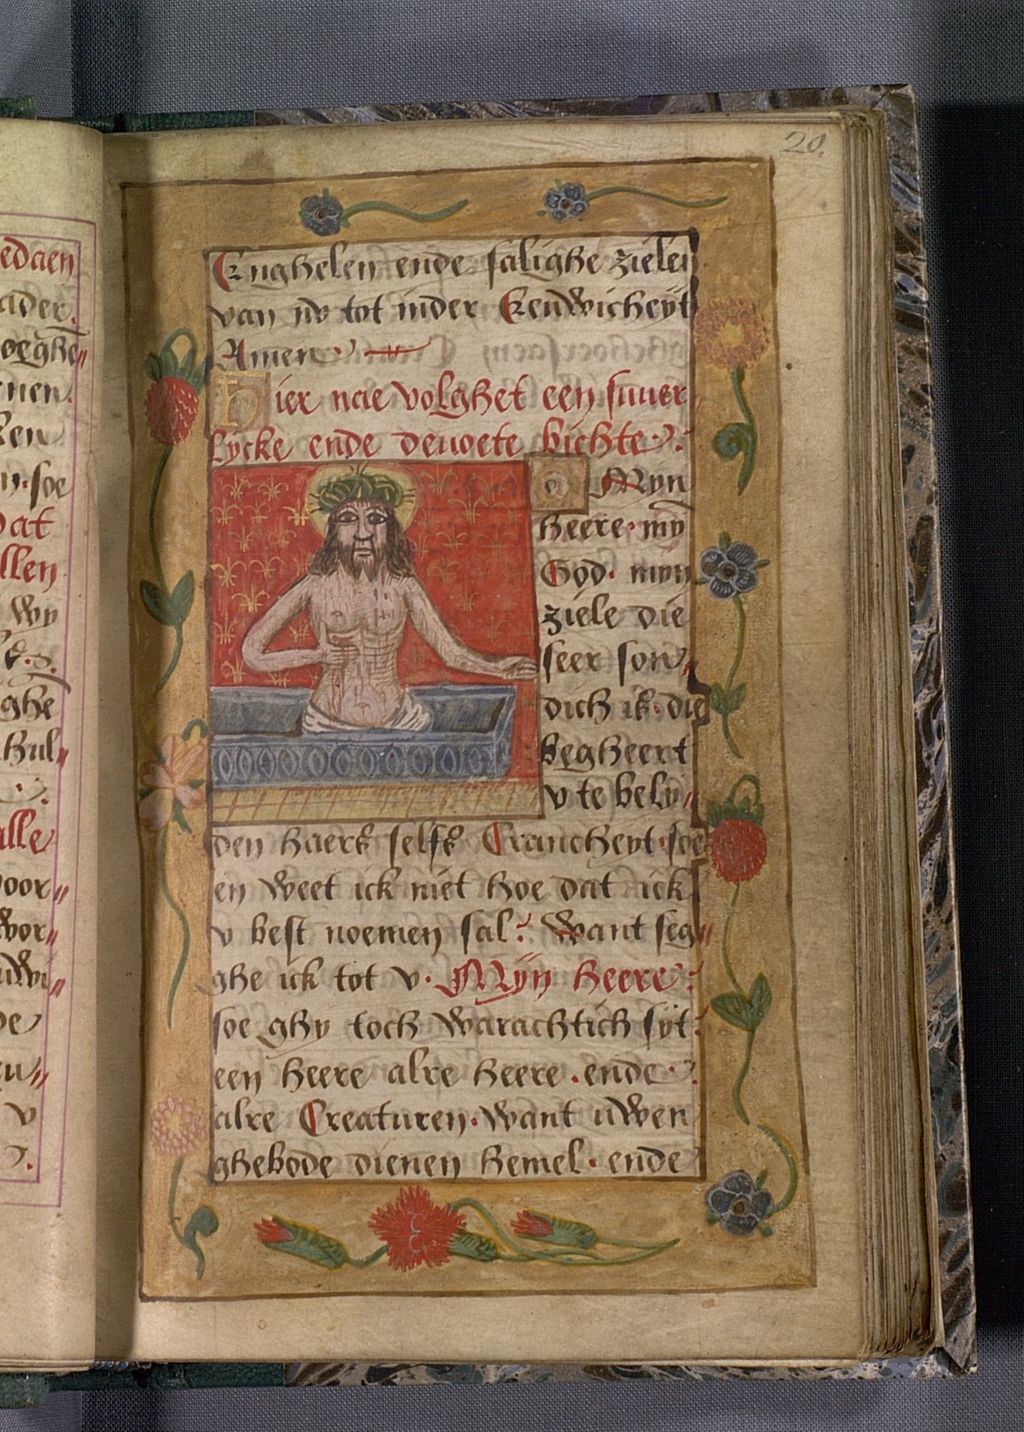 20.
Enghelen ende salighe zielen
van nv tot inder Eeuwicheyt
Amen
Hier nae volghet een suuer
lycke ende deuoete bichte
O Myn
heere. my
God. myn
ziele die
seer son
dich is. die
begheert
v te bely
den haers selfs Cranchheyt. soe
en weet ick niet hoe dat ick
v best noemen sal? Want seg
ghe ick tot v. Myn heere
soe ghy toch warachtich syt
een heere alre heere. ende
alre Creaturen. want uwen
ghebode dienen hemel. ende
edaen
ader.
oeghe
nen.
ken
n. soe
dat
llen
wy
ghe
hul
alle
voor
wor
uwi
de
v